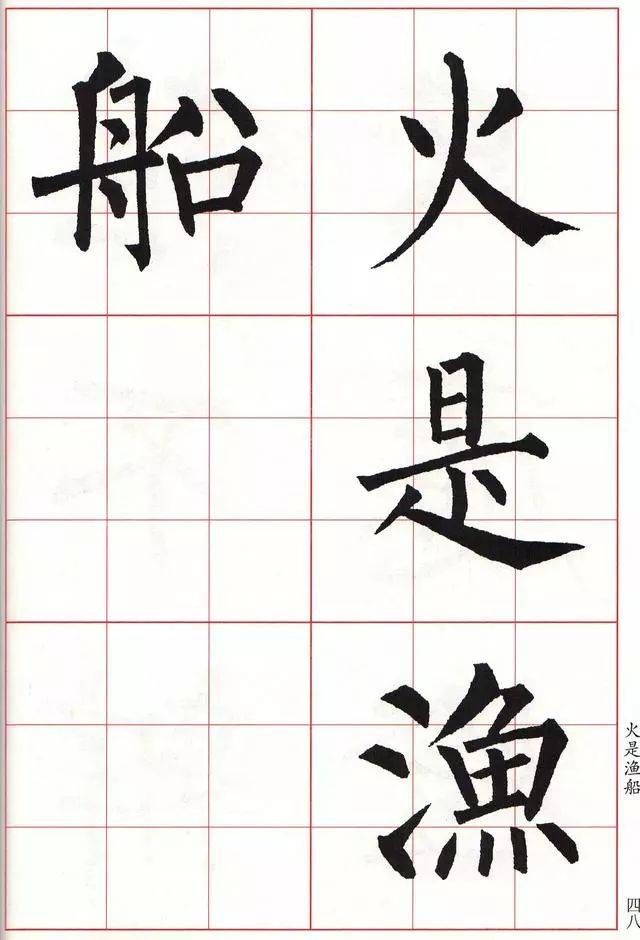 火是漁
船
火是渔船
四八